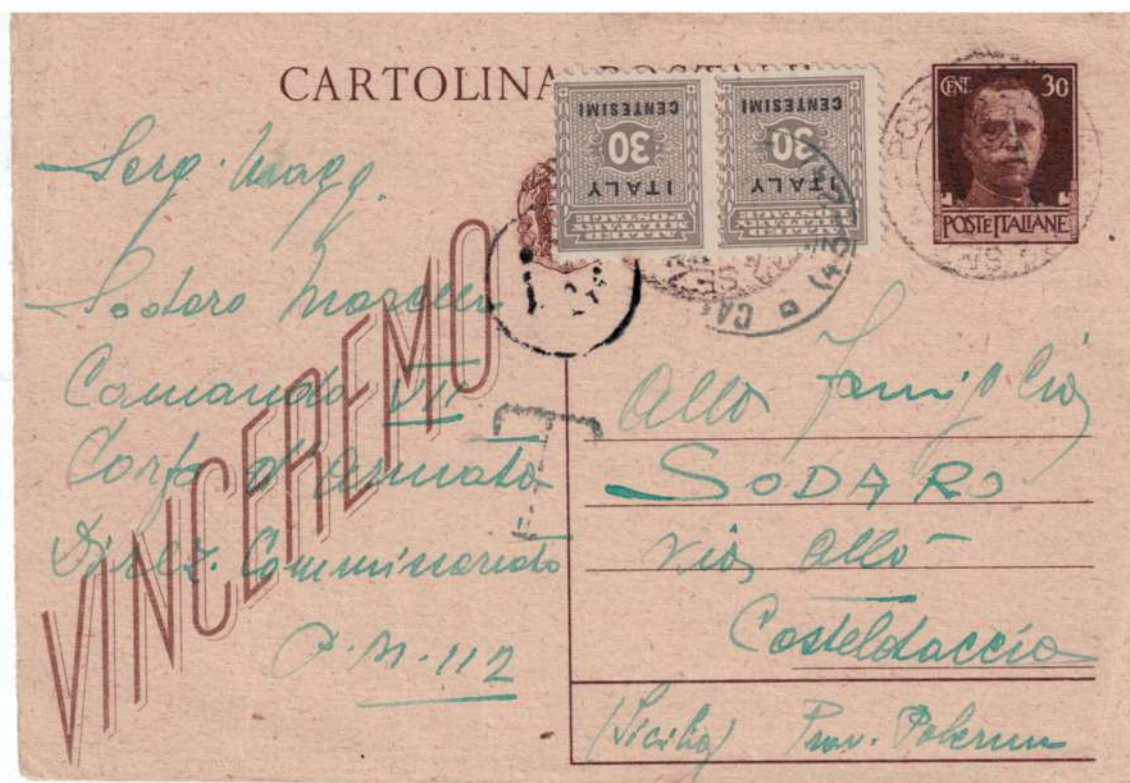 CARTOLINA
CENT. 30
POSTE ITALIANE
ITALY
30
CENTESIMI
ITALY
30
CENTESIMI
Serg. Magg.
Sodaro
Comando VII
Corpo d'Armata
Direz. Commissariato
P.M. 112
VINCEREMO
T
Alla Famiglia
SODARO
Via Allò
Casteldaccia
(Sicilia) Prov. Palermo